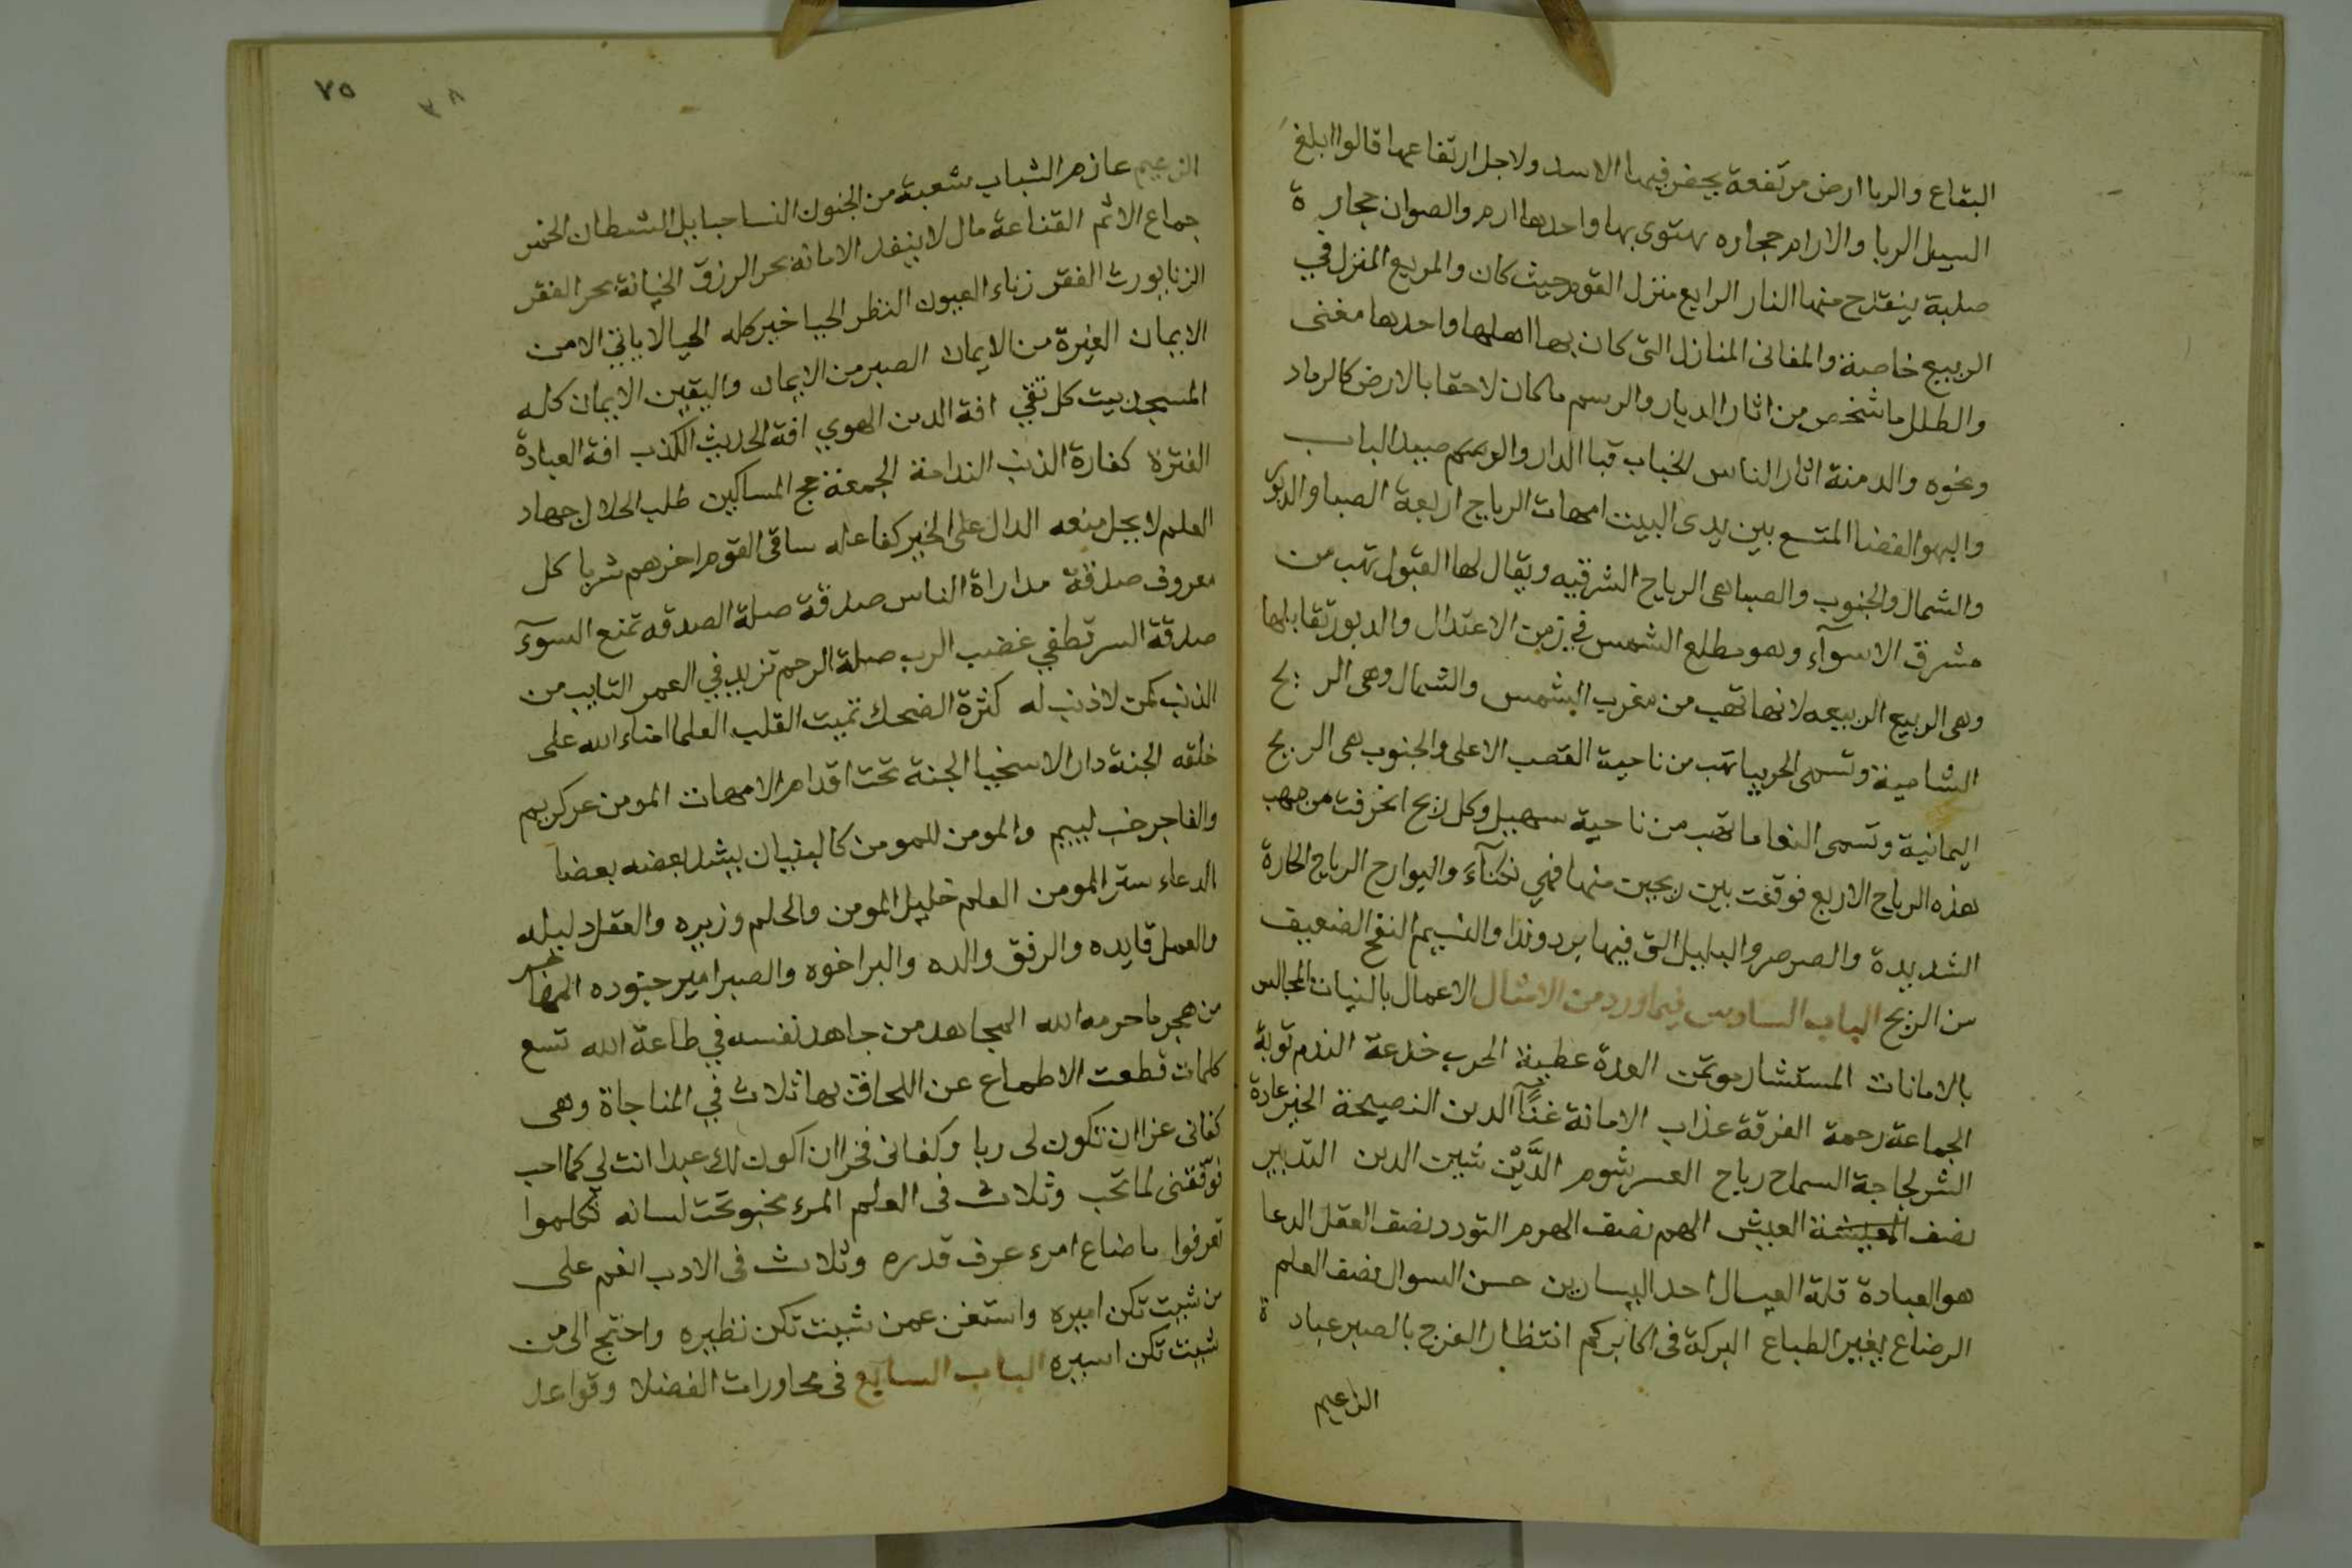 البقاع والربا ارض مرتفعة يحفر فيها الاسد ولاجل ارتفاعها قالوا ابلغ
السيل الربا والارام حجاره يهتوى بها واحدها ارم والصوان حجارة
صلبة ينقدح منها النار الرابع منزل القوم حيث كان والمربع المنزل في
الربيع خاصة والمغانى المنازل التى كان بها اهلها واحدها مغنى
والطلل ما شخص من اثار الديار والرسم ما كان لاحقا بالارض كالرماد
ونحوه والدمنة اثار الناس الخباب قبا الدار والوصيد الباب
والبهو الفضا المتسع بين يدى البيت امهات الرياح اربعة الصبا والدبور
والشمال والجنوب والصبا هى الرياح الشرقيه ويقال لها القبول تهب من
مشرق الاسوآء وهو مطلع الشمس في زمن الاعتدال والدبور تقابلها
وهى الربيع الربيعه لانها تهب من مغرب الشمس والشمال وهى الريح
الشامية وتسمى الحربيا تهب من ناحية القصب الاعلى والجنوب هى الريح
اليمانية وتسمى النعاما تهب من ناحية سهيل وكل ريح انحرفت من مهب
هذه الرياح الاربع فوقعت بين ريحين منها فهي نكبآء والبوارح الرياح الحارة
الشديدة والصرصر والبليل التى فيها برد وندا والنسيم النفح الضعيف
من الريح الباب السادس فيما ورد من الامثال الاعمال بالنيات المجالس
بالامانات المستشار موتمن العدة عطية الحرب خدعة الندم توبة
الجماعة رحمة الفرقة عذاب الامانة غنًآ الدين النصيحة الخير عادة
الشر لجاجة السماح رباح العسر شوم الدَّيْن شين الدين التدبير
نصف المعيشة العيش الهم نصف الهرم التودد نصف العقل الدعا
هو العبادة قلة العيال احد اليسارين حسن السوال نصف العلم
الرضاع يغير الطباع البركة فى اكابركم انتظار الفرج بالصبر عبادة
الزعيم
٧٥
٣٨
الزعيم عازم الشباب شعبة من الجنون النسا حبايل الشيطان الخمر
جماع الاثم القناعة مال لا ينفد الامانة بحر الرزق الخيانة بحر الفقر
الزنا يورث الفقر زناء العيون النظر الحيا خير كله الحيا لا ياتي الا من
الايمان الغيرة من الايمان الصبر من الايمان واليقين الايمان كله
المسجد بيت كل تقي افة الدين الهوي افة الحديث الكذب افة العبادة
الفترة كفارة الذنب الندامة الجمعة حج المساكين طلب الحلال جهاد
العلم لا يحل منعه الدال على الخير كفاعله ساقى القوم اخرهم شربا كل
معروف صدقة مداراة الناس صدقة صلة الصدقه تمنع السوآء
صدقة السر تطفي غضب الرب صلة الرحم تزيد في العمر التايب من
الذنب كمن لا ذنب له كثرة الضحك تميت القلب العلما امناء الله على
خلقه الجنة دار الاسخيا الجنة تحت اقدام الامهات المومن غر كريم
والفاجر خب لييم والمومن للمومن كالبنيان يشد بعضه بعضا
الدعاء ستر المومن العلم خليل المومن والحلم وزيره والعقل دليله
والعمل قايده والرفق والده والبر اخوه والصبر امير جنوده المهاجر
من هجر ما حرمه الله المجاهد من جاهد نفسه في طاعة الله تسع
كلمات قطعت الاطماع عن اللحاق بها ثلاث في المناجاة وهى
كفانى عزا ان تكون لى ربا وكفانى فخرا ان اكون لك عبدا انت لي كما احب
فوّفقنى لما تحب وثلاث فى العلم المرء مخبو تحت لسانه تكلموا
تعرفوا ما ضاع امرء عرف قدره وثلاث فى الادب انعم على
من شيت تكن اميره واستغن عمن شيت تكن نظيره واحتج الى من
شيت تكن اسيره الباب السابع فى محاورات الفضلا وقواعد